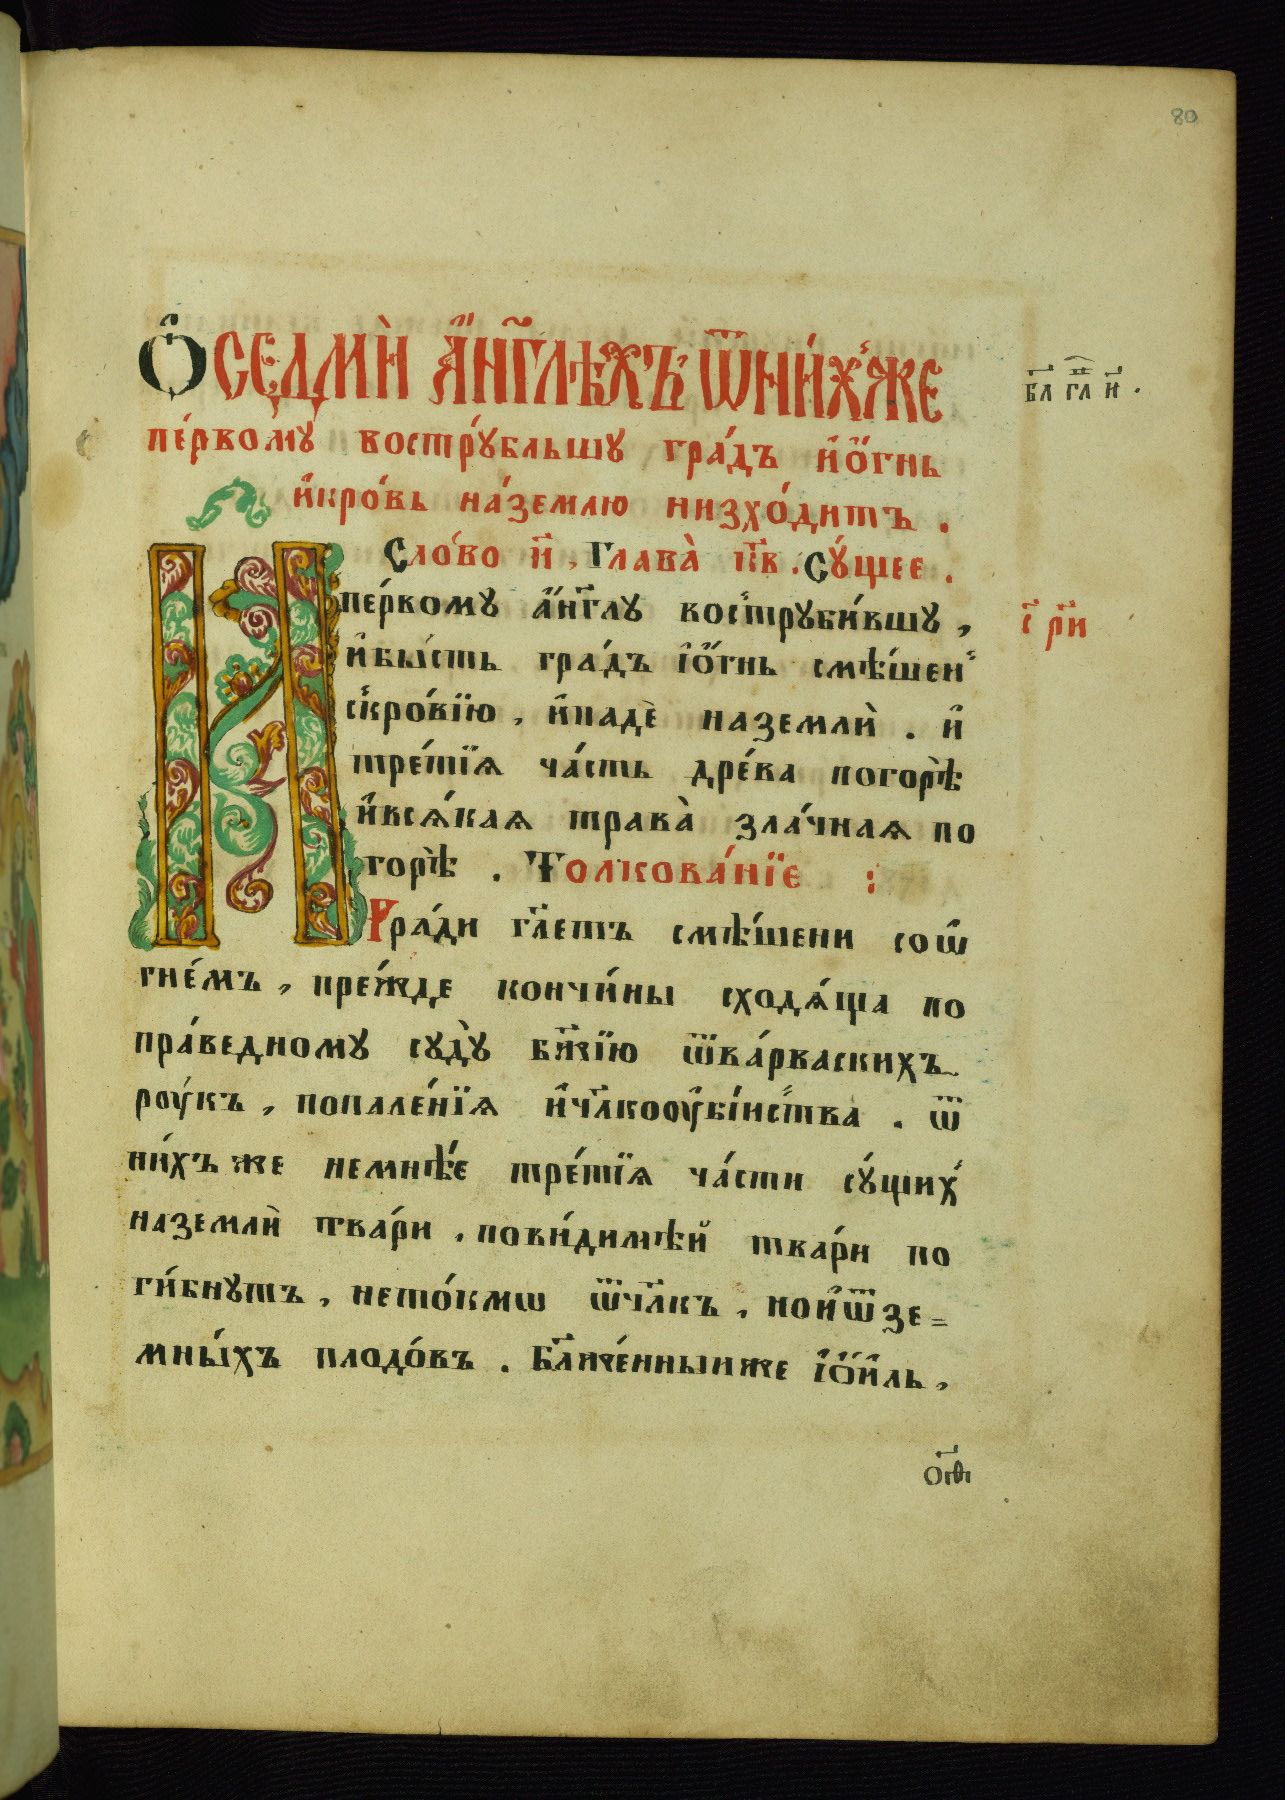 80
Ѻ҆ СЕДМѝ А҆́Н҃ГЛѢХЪ Ѿ НИ́Х ЖЕ
бл҃ гл҃ и҃ .
пе́рвому востру́бльшу гра́дъ и҆ о҆́гнь
и҆ кро́вь на́ землю низхо́дитъ .
Сло́во и҃ , Глава̀ к҃в . Су́щее .
И первому а҆́нг҃лу вострꙋби́вшу ,
с҃ р҃и
и҆ бы́сть гра́дъ і҆ о҆́гнь смѣ́шен
с кро́вїю , и҆ падѐ на землѝ . и҆
тре́тїѧ ча́сть дре́ва погорѣ̀
и҆ всѧ́каѧ трава̀ зла́чнаѧ по
горѣ̀ . Толкова́нїе :
Гра́ди гл҃етъ смѣ́шени со ѿ
гне́мъ , пре́жде кончи́ны сходѧ́ща по
пра́ведному суду̀ бж҃їю ѿ ва́рваскихъ
роу́къ , попале́нїѧ и҆ чл҃кооу҆бі́иства . ѿ
ни́хъ же не мнѣ́е тре́тїѧ ча́сти су́щих
на землѝ тва́ри , по ви́димѣй тва́ри по
ги́бнутъ , не то́кмѡ ѿ чл҃къ , но и҆ ѿ зе=
мны́хъ плодо́въ . Бл҃же́нныи же і҆ѡ́иль ,